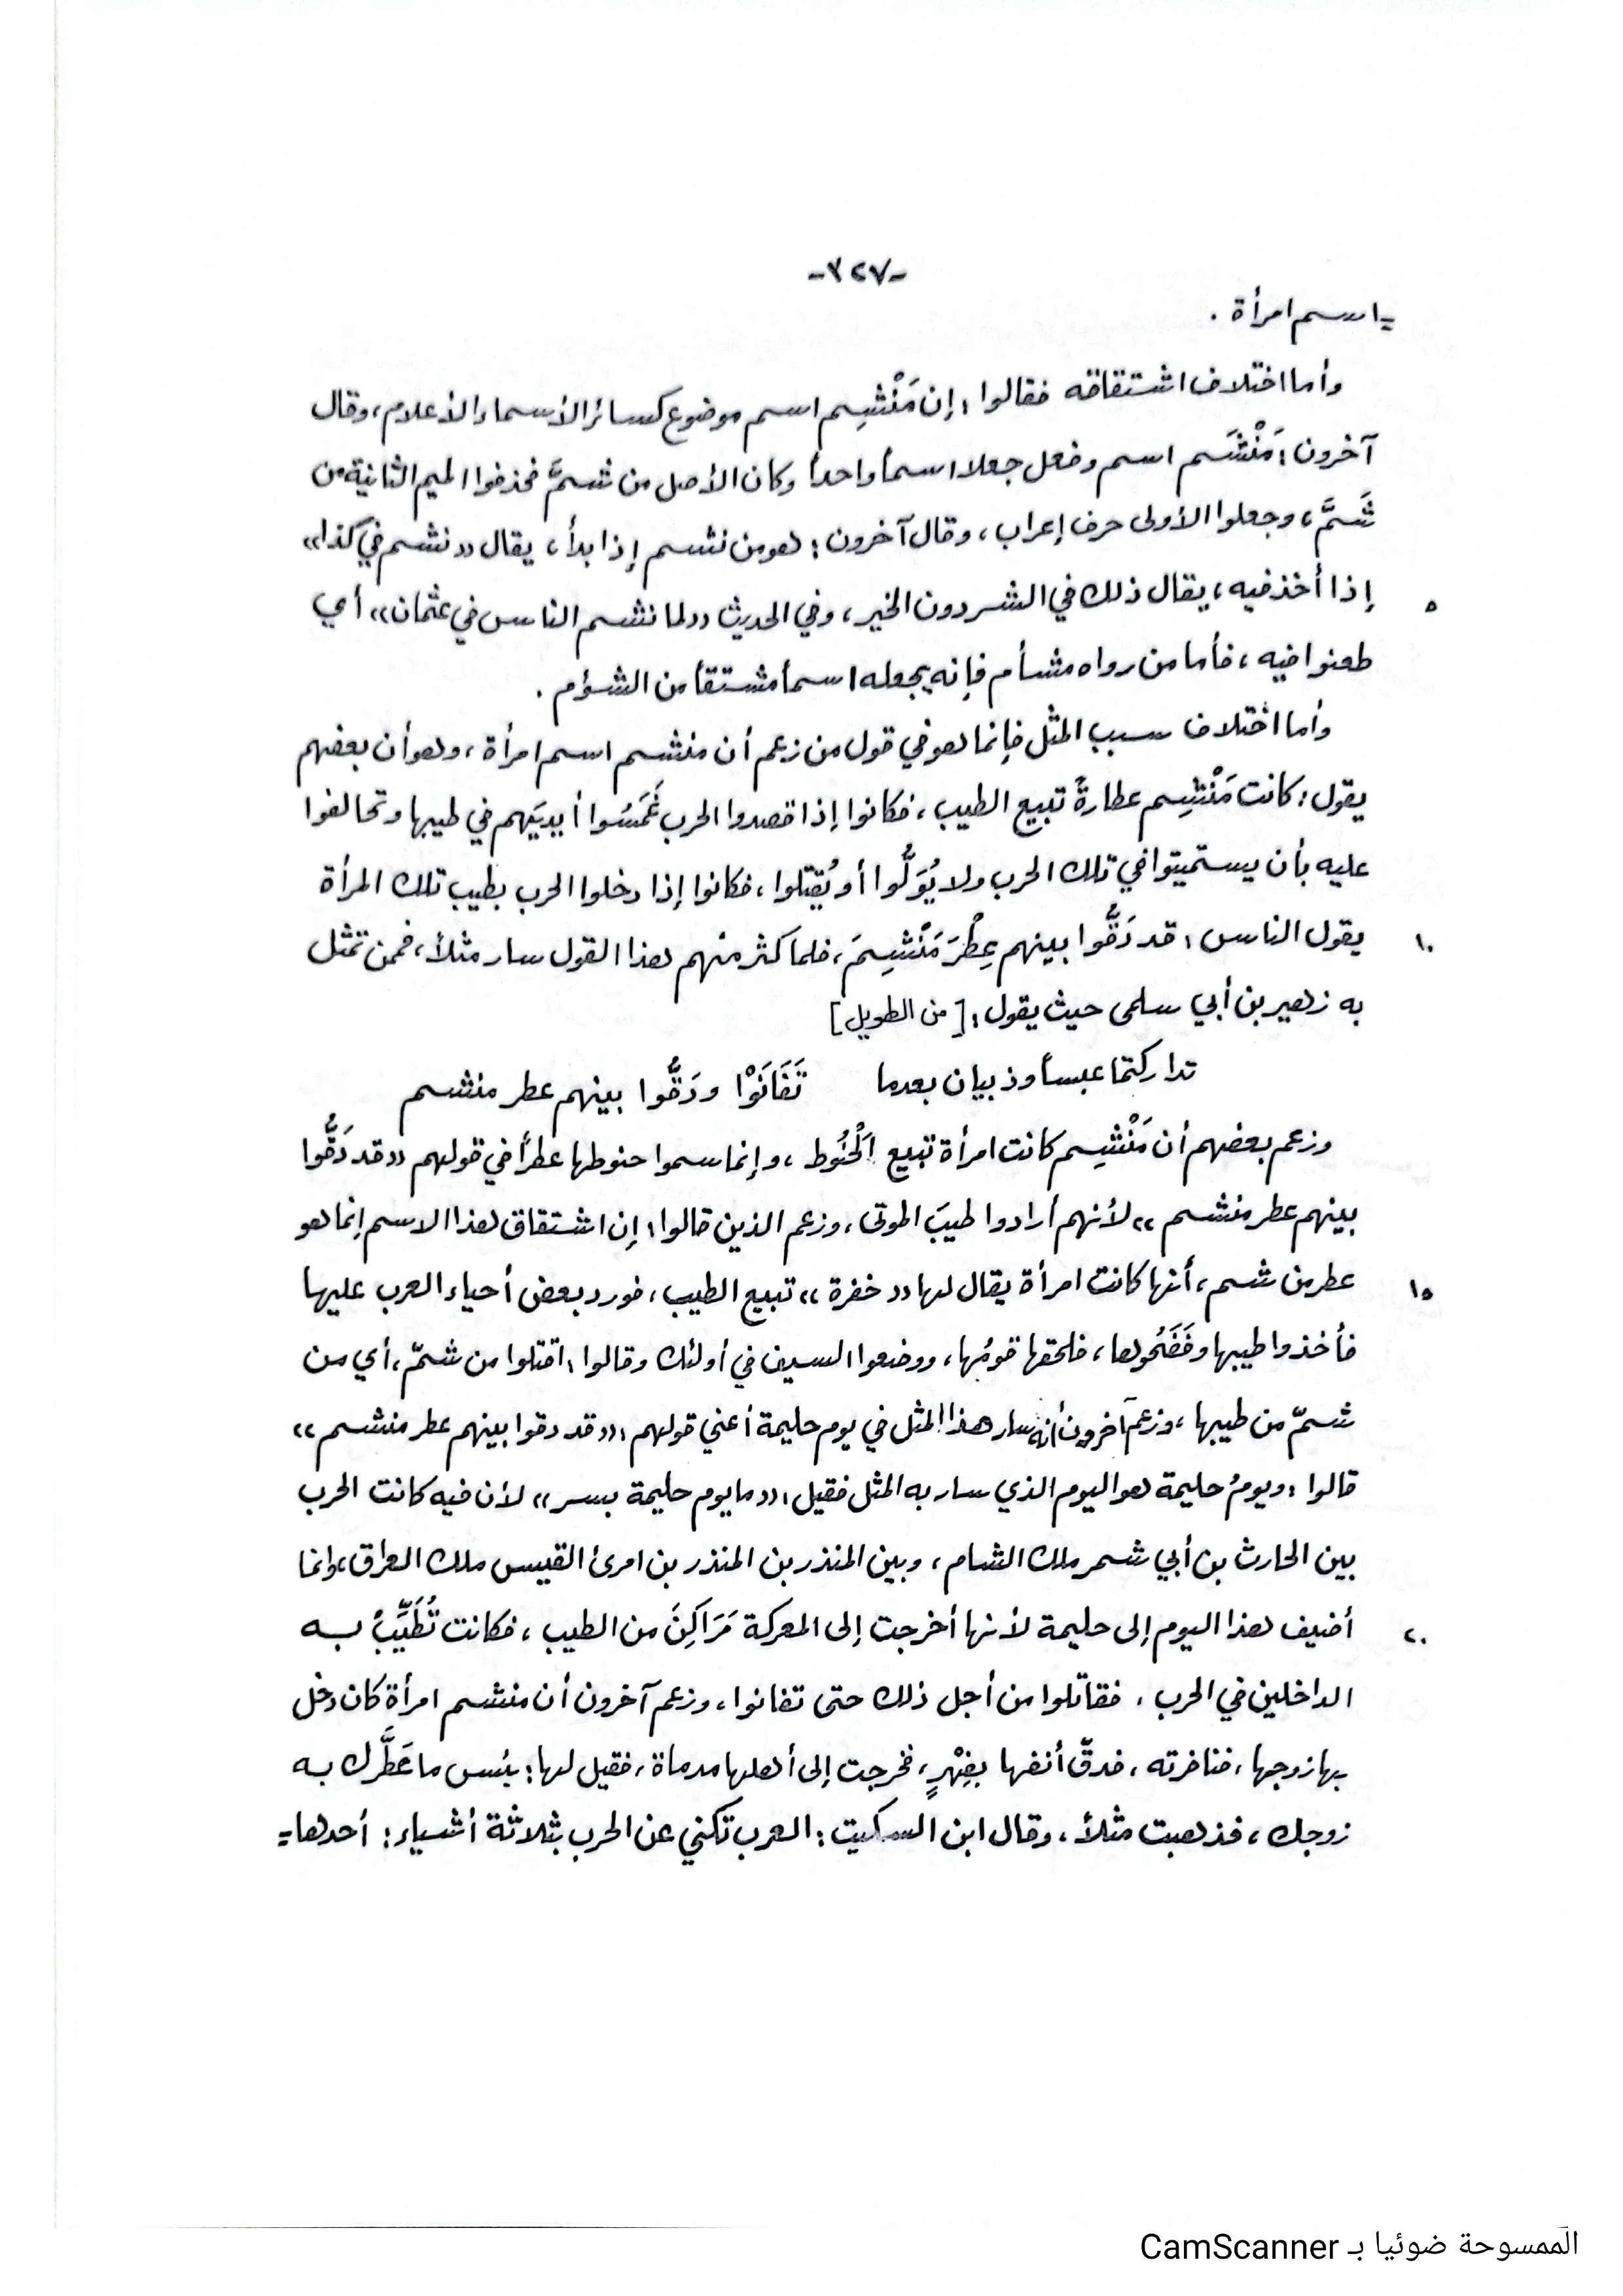 -٣٢٧-
= اسم امرأة .
وأما اختلاف اشتقاقه فقالوا : إن مَنْشِم اسم موضوع كسائر الأسماء الأعلام ، وقال
آخرون : مَنْشَم اسم وفعل جعلا اسماً واحداً وكان الأصل من شمَّ فحذفوا الميم الثانية من
شَمَّ ، وجعلوا الأولى حرف إعراب ، وقال آخرون : هو من نشم إذا بدأ ، يقال « نشم في كذا »
٥ إذا أخذ فيه ، يقال ذلك في الشر دون الخير ، وفي الحديث « لما نشم الناس في عثمان » أي
طعنوا فيه ، فأما من رواه مشأم فإنه يجعله اسماً مشتقاً من الشؤم .
وأما اختلاف سبب المثل فإنما هو في قول من زعم أن منشم اسم امرأة ، وهو أن بعضهم
يقول : كانت مَنْشِم عطارةً تبيع الطيب ، فكانوا إذا قصدوا الحرب غَمَسُوا أيديَهم في طيبها وتحالفوا
عليه بأن يستميتوا في تلك الحرب ولا يُوَلُّوا أو يُقتلوا ، فكانوا إذا دخلوا الحرب بطيب تلك المرأة
١٠ يقول الناس : قد دَقُّوا بينهم عِطْرَ مَنْشِمَ ، فلما كثر منهم هذا القول سار مثلاً ، فمن تمثل
به زهير بن أبي سلمى حيث يقول : [ من الطويل ]
تداركتما عبساً وذبيان بعدما تَفَانَوْا ودَقُّوا بينهم عطر منشم
وزعم بعضهم أن مَنْشِم كانت امرأة تبيع الحَنُوط ، وإنما سموا حنوطها عطراً في قولهم « قد دَقُّوا
بينهم عطر منشم » لأنهم أرادوا طيبَ الموتى ، وزعم الذين قالوا : إن اشتقاق هذا الاسم إنما هو
١٥ عطر من شم ، أنها كانت امرأة يقال لها « خفرة » تبيع الطيب ، فورد بعض أحياء العرب عليها
فأخذوا طيبها وفَضَحُوها ، فلحقها قومُها ، ووضعوا السيف في أولئك وقالوا : اقتلوا من شمّ ، أي من
شمّ من طيبها ، وزعم آخرون أنه سار هذا المثل في يوم حليمة أعني قولهم : « قد دقوا بينهم عطر منشم »
قالوا : ويومُ حليمة هو اليوم الذي سار به المثل فقيل : « ما يوم حليمة بسر » لأن فيه كانت الحرب
بين الحارث بن أبي شمر ملك الشام ، وبين المنذر بن المنذر بن امرئ القيس ملك العراق ، وإنما
٢٠ أضيف هذا اليوم إلى حليمة لأنها أخرجت إلى المعركة مَرَاكِنَ من الطيب ، فكانت تُطَيِّبُ به
الداخلين في الحرب ، فقاتلوا من أجل ذلك حتى تفانوا ، وزعم آخرون أن منشم امرأة كان دخل
بها زوجها ، فنافرته ، فدقّ أنفها بفِهْرٍ ، فخرجت إلى أهلها مدماة ، فقيل لها : بئس ما عَطَّرك به
زوجك ، فذهبت مثلاً ، وقال ابن السكيت : العرب تكني عن الحرب بثلاثة أشياء : أحدها =
الممسوحة ضوئيا بـ CamScanner